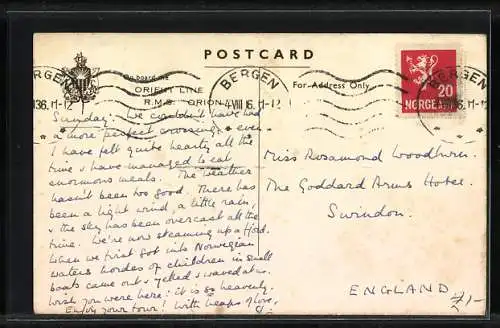 POSTCARD
On board the
ORIENT LINE
R.M.S. ORION
For Address Only
BERGEN
4 VIII 36. 11-12
BERGEN
BERGEN
36. 11-12
20
NORGE
Sunday. We couldn't have had
a more perfect crossing - even
I have felt quite hearty all the
time & have managed to eat
enormous meals. The weather
hasn't been too good. There has
been a light wind, a little rain,
& the sky has been overcast all the
time. We're now steaming up a fjord.
When we first got into Norwegian
waters hordes of children in small
boats came out & yelled & waved at us.
Wish you were here: it is so heavenly.
Enjoy your tour! With heaps of love.
Miss Rosamond Woodburn.
The Goddard Arms Hotel.
Swindon.
ENGLAND
£1-